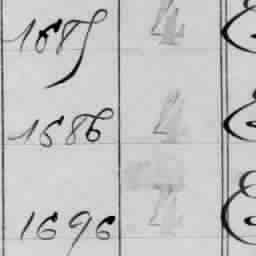 1685 4
1686 4
1696 4